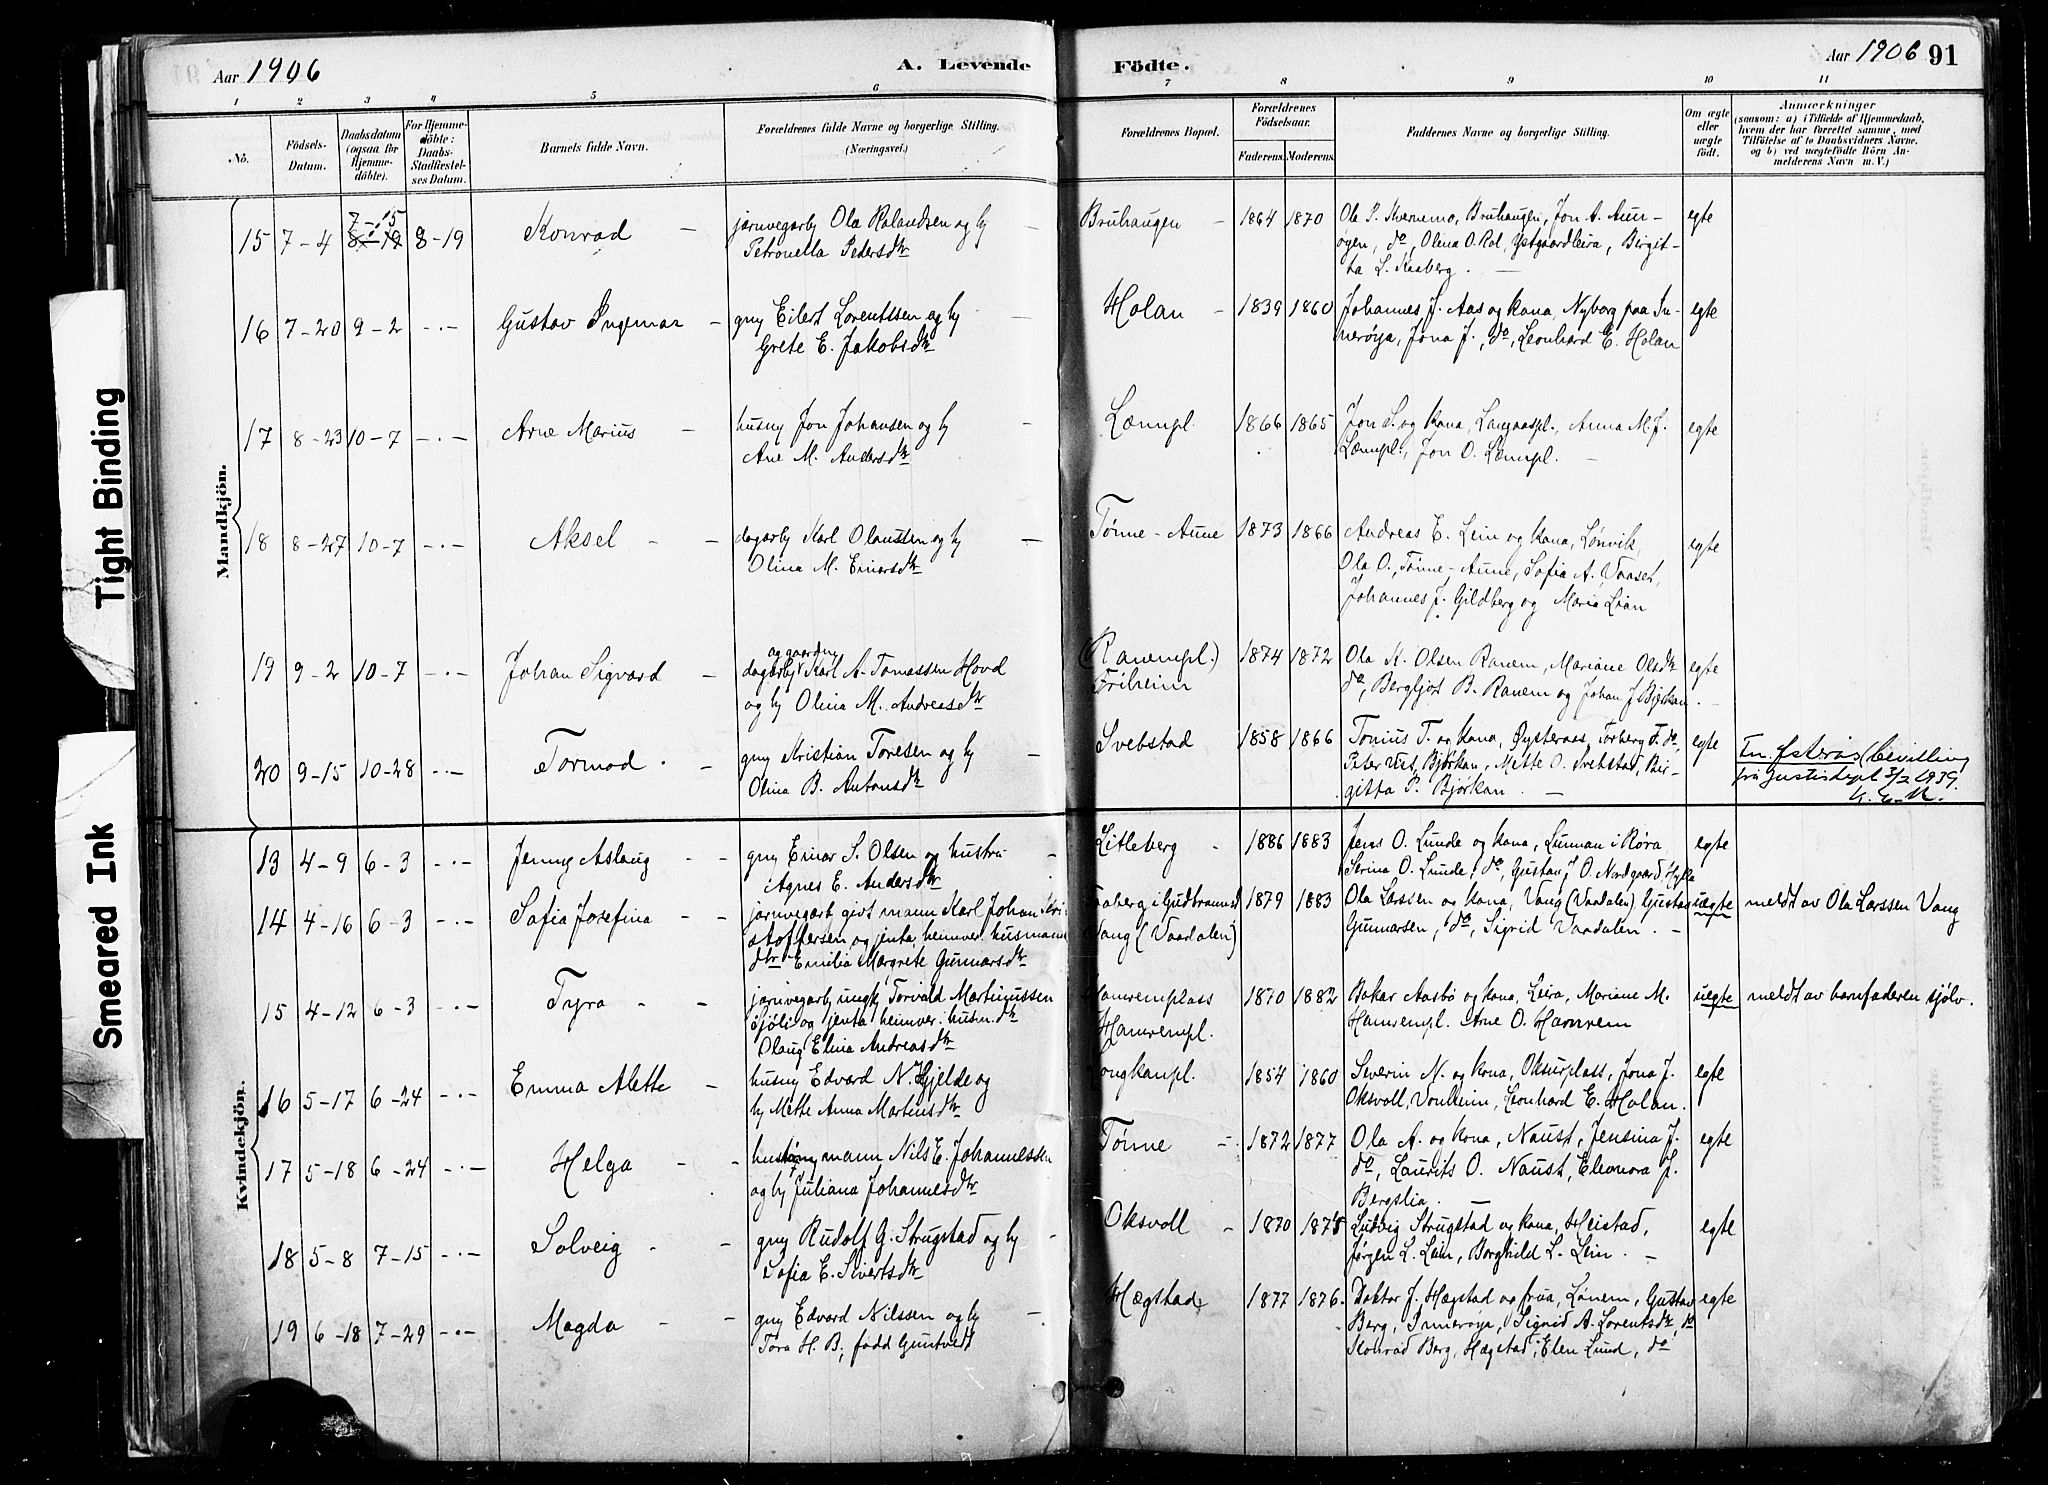 Aar 1906
A. Levende Födte.
Aar 1906 91
1 2 3 4 5 6 7 8 9 10 11
No.
Födsels-
Datum.
Daabsdatum
(ogsaa for
Hjemme-
döbte).
For Hjemme-
döbte:
Daabs-
Stadfæstel-
ses Datum.
Barnets fulde Navn.
Forældrenes fulde Navne og borgerlige Stilling.
(Næringsvei.)
Forældrenes Bopæl.
Forældrenes
Födselsaar.
Faderens. Moderens.
Faddernes Navne og borgerlige Stilling.
Om ægte
eller
uægte
födt.
Anmærkninger
(saasom: a) i Tilfælde af Hjemmedaab,
hvem der har forrettet samme, med
Tilföielse af to Daabsvidners Navne,
og b) ved uægtefödte Börn An-
melderens Navn m. V.)
Mandkjön.
Tight Binding
Smeared Ink
Kvindekjön.
15 7-4 7-15 8-19 8-19 Konrad
jarnvegarb Ola Rolandsen og hy
Petronella Pedersdtr
Bruhaugen 1864 1870
Ola P. Kvernmo, Bruhaugen, Jon A. Aun-
øgen, do, Olina O. Rol, Ystgaardleira, Birgit-
ta L. Kaaberg.
egte
16 7-20 9-2 -·- Gustav Ingemar
gmy Eilert Lorentssen og hy
Grete E. Jakobsdtr
Holan 1839 1860
Johannes J. Aas og kona, Nyborg paa In-
nerøya, Jona J., do, Leonhard E. Holan
egte
17 8-23 10-7 -·- Arne Marius
husmy Jon Johansen og hy
Ane M. Andersdtr
Lømpl. 1866 1865
Jon S. og kona, Langaaspl., Anna M. J.
Lømpl., Jon O. Lømpl.
egte
18 8-27 10-7 -·- Aksel
dagarby Karl Olaussen og hy
Olina M. Einarsdtr
Tønne-Aune 1873 1866
Andreas E. Lein og kona, Lønvik,
Ola O., Tønne-Aune, Sofia A. Vaaset,
Johannes J. Gildberg og Maria Lian
egte
19 9-2 10-7 -·- Johan Sigvard
og gaardmy
dagarby Karl A. Tomassen Hovd
og hy Olina M. Andreasdtr
(Ranempl.)
Friheim
1874 1872
Ola K. Olsen Ranem, Mariane Olsdtr
do, Bergljot B. Ranem og Johan J. Bjørkan.
egte
20 9-15 10-28 -·- Tormod
gmy Kristian Toresen og hy
Olina B. Antonsdtr
Svebstad 1858 1866
Tonius T. og kona, Øysteraas, Torberg T. do,
Peter Vist, Bjørkan, Mette O. Svebstad, Bir-
gitta P. Bjørkan.
egte
En Østerås (bevilling
frå Justisdept 3/2 1939.
13 4-9 6-3 -·- Jenny Aslaug
gmy Einar S. Olsen og hustru
Agnes E. Andersdtr
Litleberg 1886 1883
Jens O. Lunde og kona, Lunnan i Røra,
Serina O. Lunde, do, Gustav J. O. Nordgard, Hylla
egte
14 4-16 6-3 -·- Sofia Josefina
jarnvegarb givt mann Karl Johan Kri-
stoffersen og jenta heimver. husmans
dtr Emilia Margrete Gunnarsdtr
Faaberg i Gudbrandsd.
Vang (Vaadalen)
1879 1883
Ola Larssen og kona, Vang (Vaadalen) Gustav
Gunnarsen, do, Sigrid Vaadalen.
uegte
meldt av Ola Larssen Vang
15 4-12 6-3 -·- Tyra
jarnvegarb ungk Torvald Martinussen
Sjøli og jenta heimver. husm. dtr
Olaug Elina Andreasdtr
Hamremplass
Hamrempl.
1870 1882
Bakar Aasbø og kona, Leira, Mariane M.
Hamrempl. Arne O. Hamrem
uegte
meldt av barnfaderen sjølv.
16 5-17 6-24 -·- Emma Alette
husmy Edvard N. Hjelde og
hy Mette Anna Martinsdtr
Longkanpl. 1854 1860
Severin N. og kona, Oksurplass, Jona J.
Oksvoll, Vonheim, Leonhard E. Holan.
egte
17 5-18 6-24 -·- Helga
mann Nils E. Johannessen
og hy Juliana Johannesdtr
Tønne 1872 1877
Ola A. og kona, Naust, Jensina J.
do, Laurits O. Naust, Eleonora J.
Bergslia.
egte
18 5-8 7-15 -·- Solveig
gmy Rudolf G. Strugstad og hy
Sofia E. Sivertsdtr
Oksvoll 1870 1875
Ludvig Strugstad og kona, Heistad,
Jørgen L. Lein, Borghild L. Lein.
egte
19 6-18 7-29 -·- Magda
gmy Edvard Nilssen og hy
Tora H. B., fødd Guntvedt
Hægstad 1877 1876.
Doktor J. Hægstad og frua, Lønem, Gustav
Berg, Innerøya, Sigrid A. Lorentsdtr, do
Konrad Berg, Hægstad, Elen Lund, do
egte